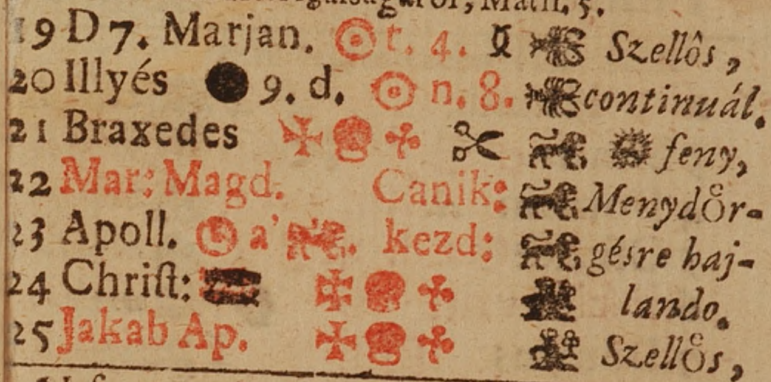 19 D 7. Marjan. ☉ t. 4. Szellôs,
20 Illyés ● 9. d. ☉ n. 8. continuál.
21 Braxedes feny,
22 Mar: Magd. Canik: Menydoͤr-
23 Apoll. ☉ a' kezd: gésre haj-
24 Christ: lando.
25 Jakab Ap. Szelloͤs,